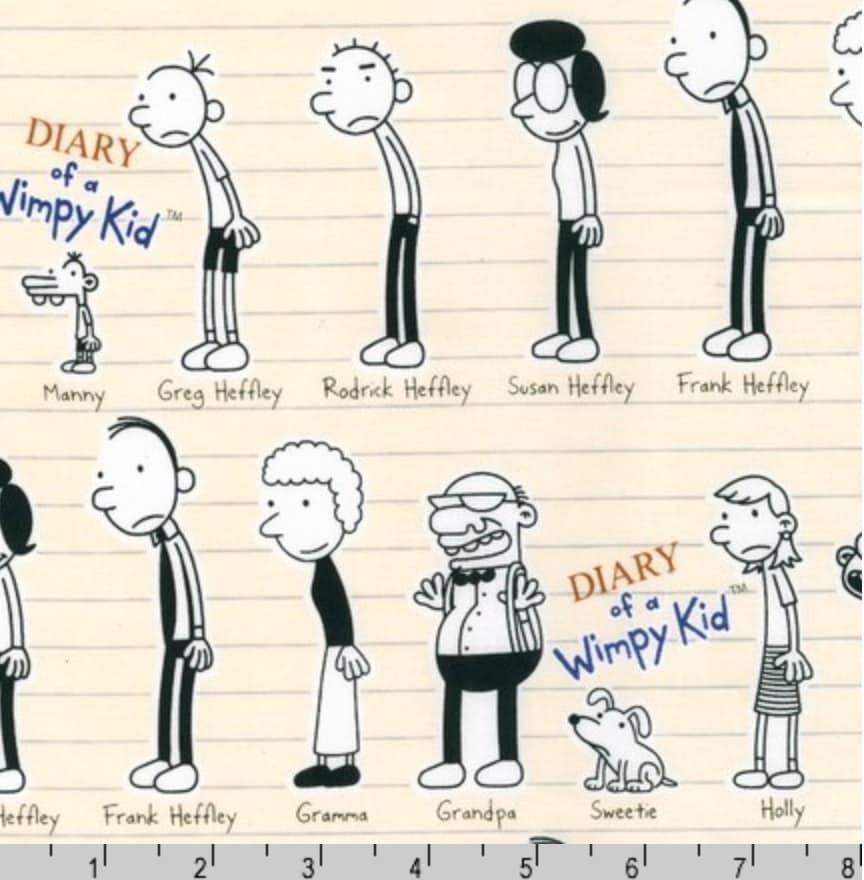 DIARY
of a
Wimpy Kid™
Manny
Greg Heffley
Rodrick Heffley
Susan Heffley
Frank Heffley
DIARY
of a
Wimpy Kid™
Heffley
Frank Heffley
Gramma
Grandpa
Sweetie
Holly
1 2 3 4 5 6 7 8